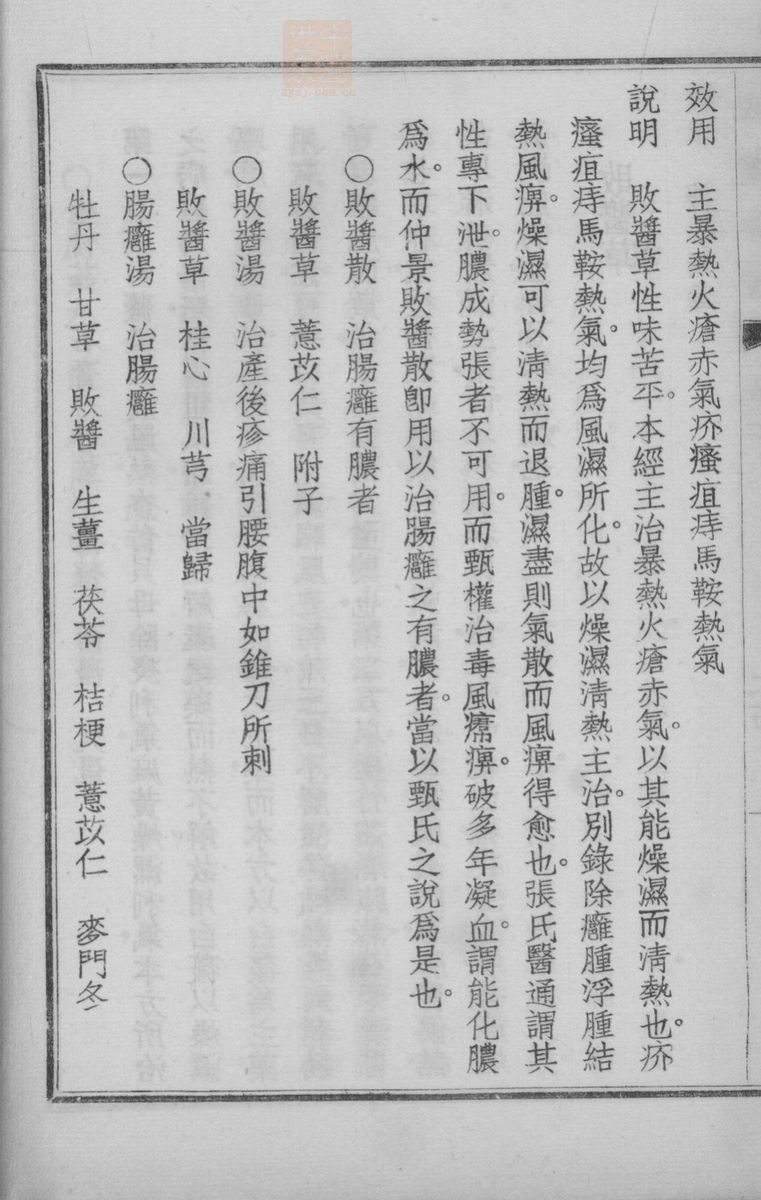 效用　主暴熱火瘡赤氣疥瘙疽痔馬鞍熱氣
說明　敗醬草性味苦平。本經主治暴熱火瘡赤氣。以其能燥濕而清熱也。疥
瘙疽痔馬鞍熱氣。均爲風濕所化。故以燥濕清熱主治。別錄除癰腫浮腫結
熱風痹。燥濕可以清熱而退腫。濕盡則氣散而風痹得愈也。張氏醫通謂其
性專下泄。膿成勢張者不可用。而甄權治毒風㿏痹。破多年凝血。謂能化膿
爲水。而仲景敗醬散卽用以治腸癰之有膿者。當以甄氏之說爲是也。
〇敗醬散　治腸癰有膿者
敗醬草　薏苡仁　附子
〇敗醬湯　治產後疹痛引腰腹中如錐刀所刺
敗醬草　桂心　川芎　當歸
〇腸癰湯　治腸癰
牡丹　甘草　敗醬　生薑　茯苓　桔梗　薏苡仁　麥門冬
zysj.com.cn